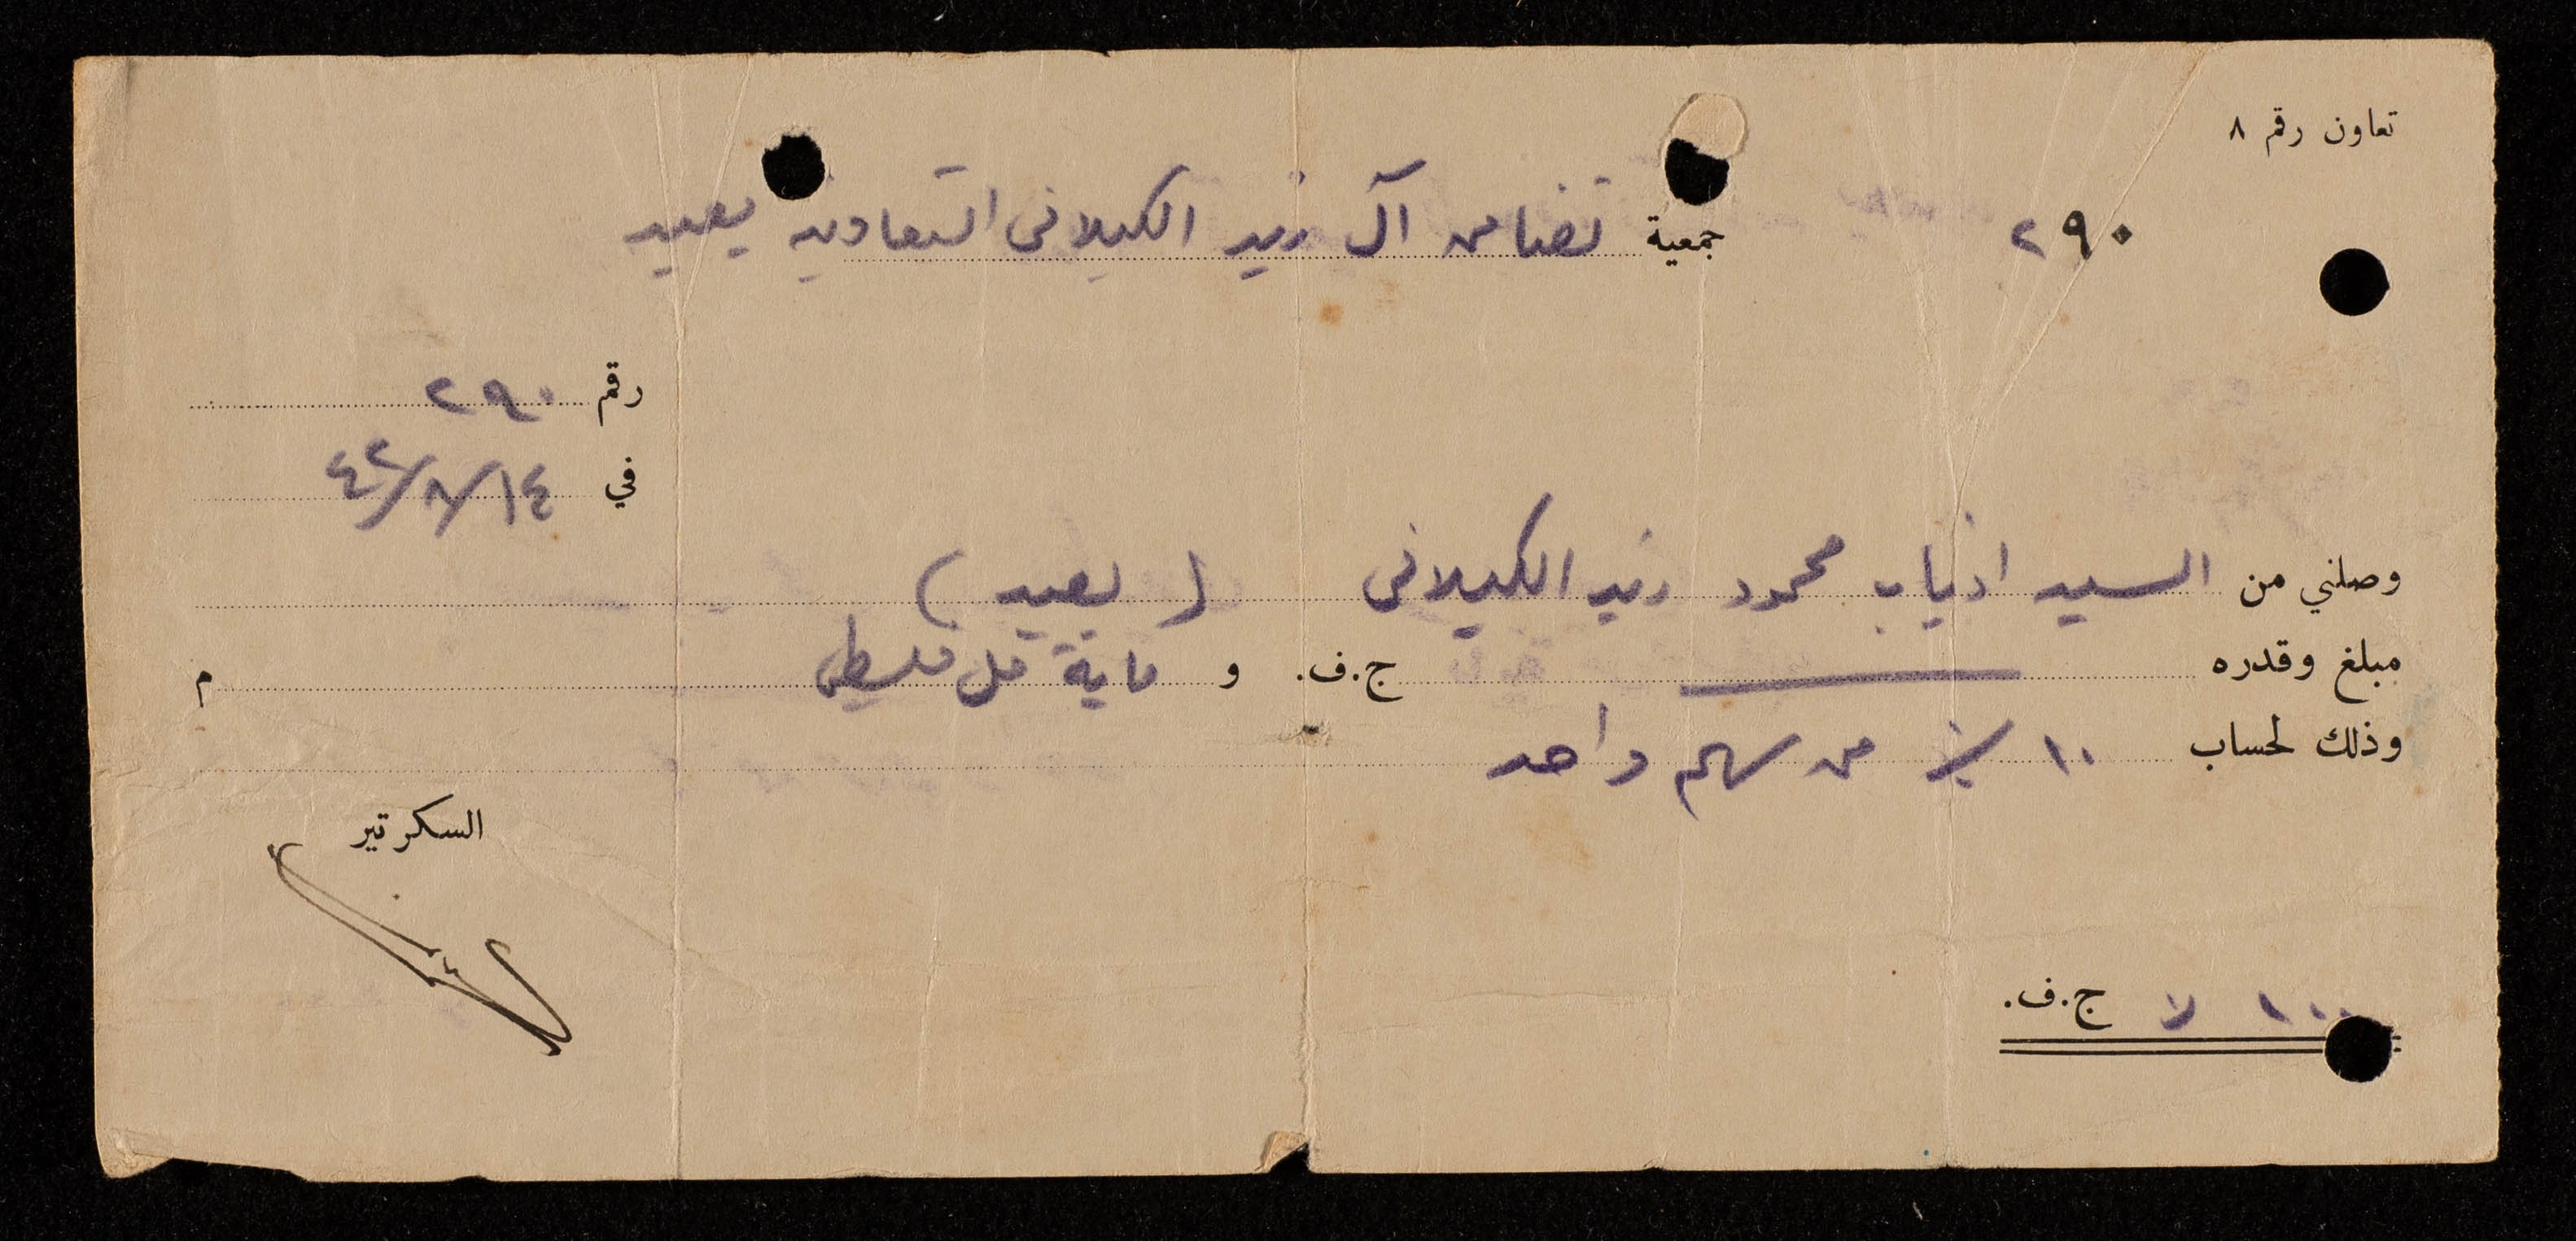 تعاون رقم ٨
٢٩٠
جمعية تضامن آل زيد الكيلاني التعاونية يعبد
رقم ٢٩٠
في ١٤/٨/٤٢
وصلني من السيد اذياب محمود زيد الكيلاني (يعبد)
مبلغ وقدره ج.ف. و ماية مل فلسطيني م
وذلك لحساب ١٠ ٪ من سهم واحد
السكرتير
١٠٠ لا ج.ف.